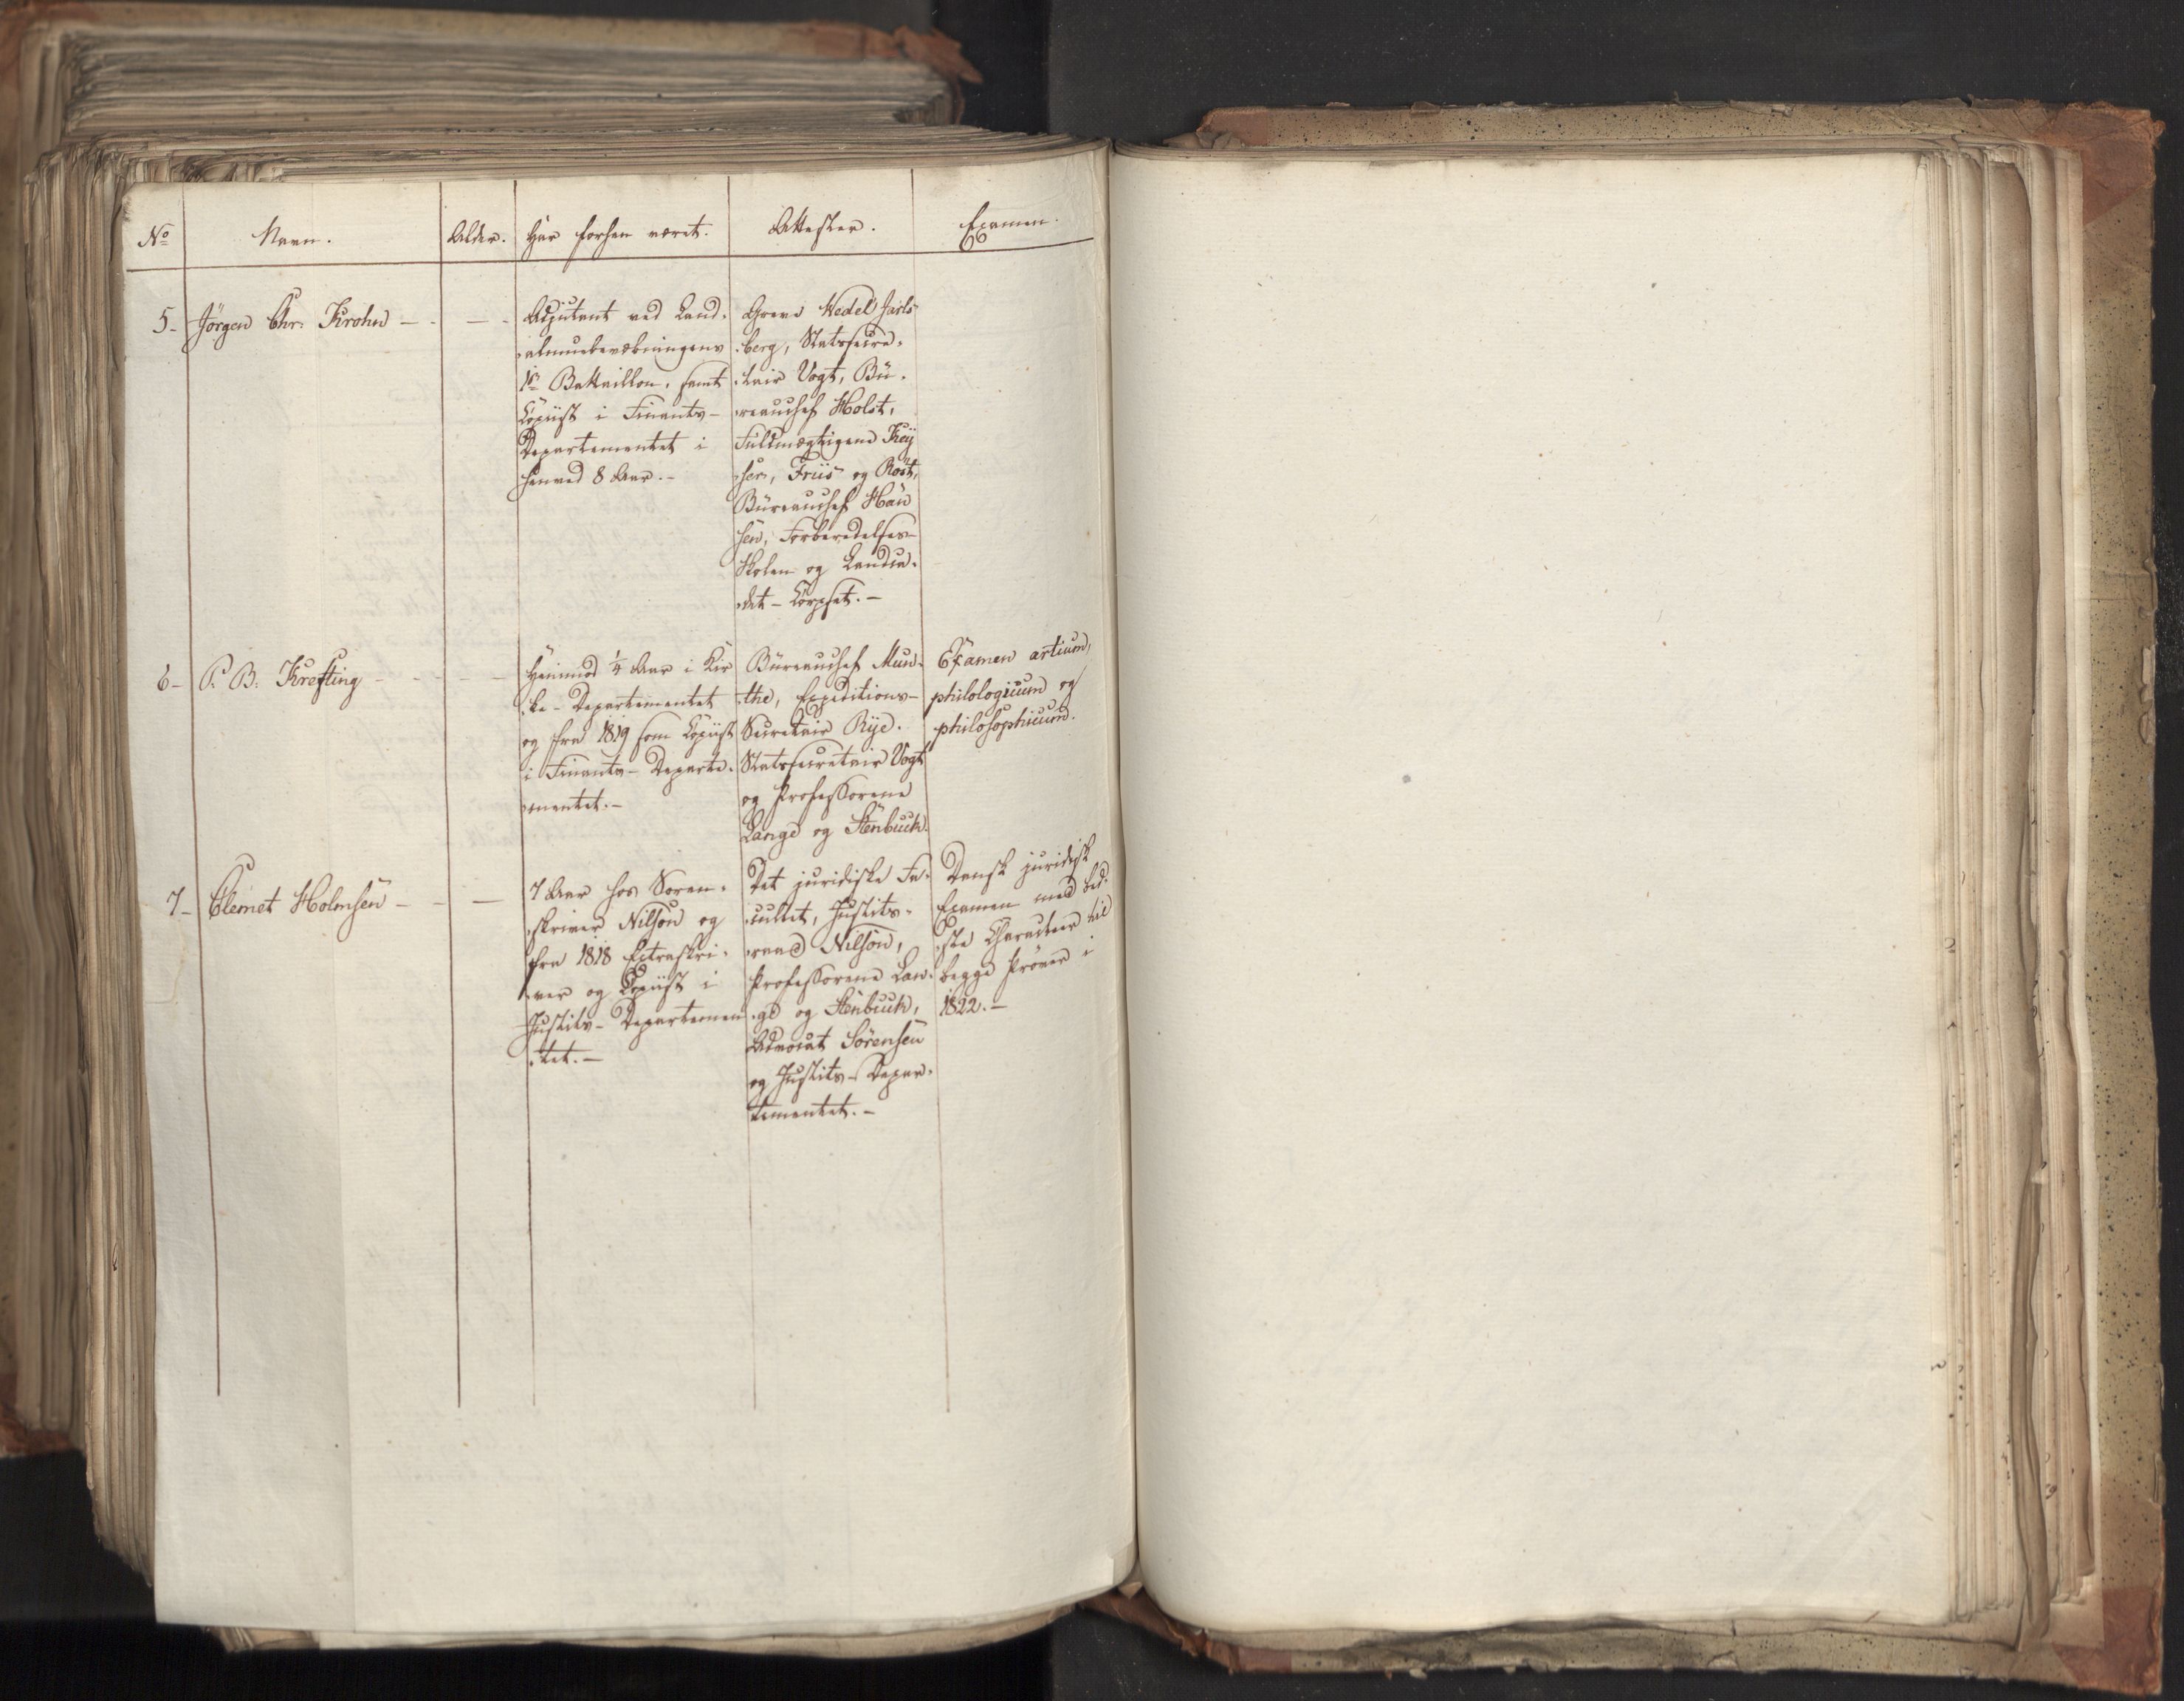 No Navn. Alder. Har forhen været. Attester. Examen.
5- Jørgen Chr: Krohn - - - -
Adjutant ved Land-
almuebevæbningens
1ste Battaillon, samt
Copiist i Finants-
Departementet i
henved 8 Aar.-
Greve Wedel Jarls-
berg, Statssecre-
tair Vogt, Bü-
reauchef Holst,
Fuldmægtigene Key
ser, Friis og Rost,
Büreauchef Han
sen, Forberedelses-
Skolen og Landca-
det-Corpset.-
6- P. B. Krefting - - - -
Henimod 1/4 Aar i Kir
ke-Departementet
og fra 1819 som Copiist
i Finants-Departe-
mentet.-
Büreauchef Mun-
the, Expeditions-
Secretair Rye.
Statssecretair Vogt
og Professorene
Lange og Stenbuch.
Examen artium,
philologicum og
philosophicum.
7- Clemet Holmsen - - -
7 Aar hos Soren-
skriver Nilson og
fra 1818 Extraskri-
ver og Copiist i
Justits-Departemen
tet.-
Det juridiske Fa-
cultet, Justits-
raad Nilson,
Professorene Lan-
ge og Stenbuch,
Advocat Sørensen
og Justits-Depar-
tementet.-
Dansk juridisk
Examen med bed-
ste Character til
begge Prøver i
1822.-